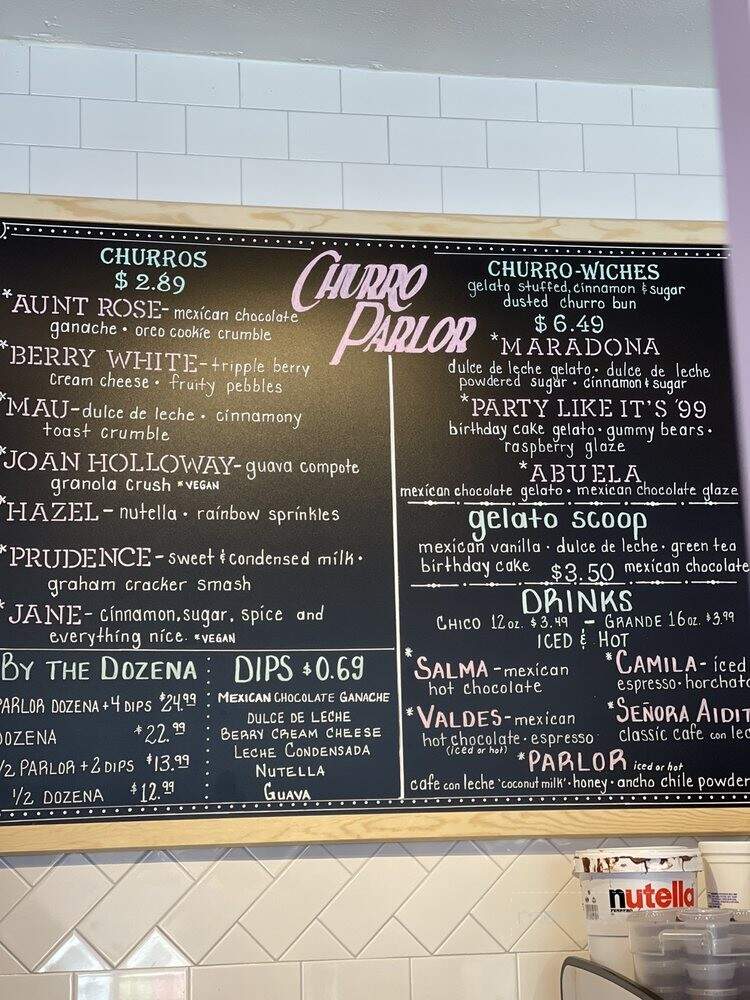 CHURRO
PARLOR
CHURROS
$2.89
*AUNT ROSE- mexican chocolate
ganache • oreo cookie crumble
*BERRY WHITE-tripple berry
cream cheese • fruity pebbles
*MAU-dulce de leche • cinnamony
toast crumble
*JOAN HOLLOWAY- guava compote
granola crush *VEGAN
*HAZEL - nutella • rainbow sprinkles
*PRUDENCE - sweet & condensed milk •
graham cracker smash
*JANE- cinnamon, sugar, spice and
everything nice. *VEGAN
BY THE DOZENA
PARLOR DOZENA + 4 DIPS $24.99
DOZENA $22.99
1/2 PARLOR + 2 DIPS $13.99
1/2 DOZENA $12.99
DIPS $0.69
MEXICAN CHOCOLATE GANACHE
DULCE DE LECHE
BERRY CREAM CHEESE
LECHE CONDENSADA
NUTELLA
GUAVA
CHURRO-WICHES
gelato stuffed, cinnamon & sugar
dusted churro bun
$6.49
*MARADONA
dulce de leche gelato • dulce de leche
powdered sugar • cinnamon & sugar
*PARTY LIKE IT'S '99
birthday cake gelato • gummy bears •
raspberry glaze
*ABUELA
mexican chocolate gelato • mexican chocolate glaze
gelato scoop
mexican vanilla • dulce de leche • green tea
birthday cake $3.50 mexican chocolate
DRINKS
CHICO 12oz. $3.49 - GRANDE 16oz. $3.99
ICED & HOT
*SALMA - mexican
hot chocolate
*CAMILA - iced
espresso • horchata
*VALDES - mexican
hot chocolate • espresso
(iced or hot)
*SEÑORA AIDIT
classic cafe con lec
*PARLOR iced or hot
cafe con leche 'coconut milk' • honey • ancho chile powder
nutella